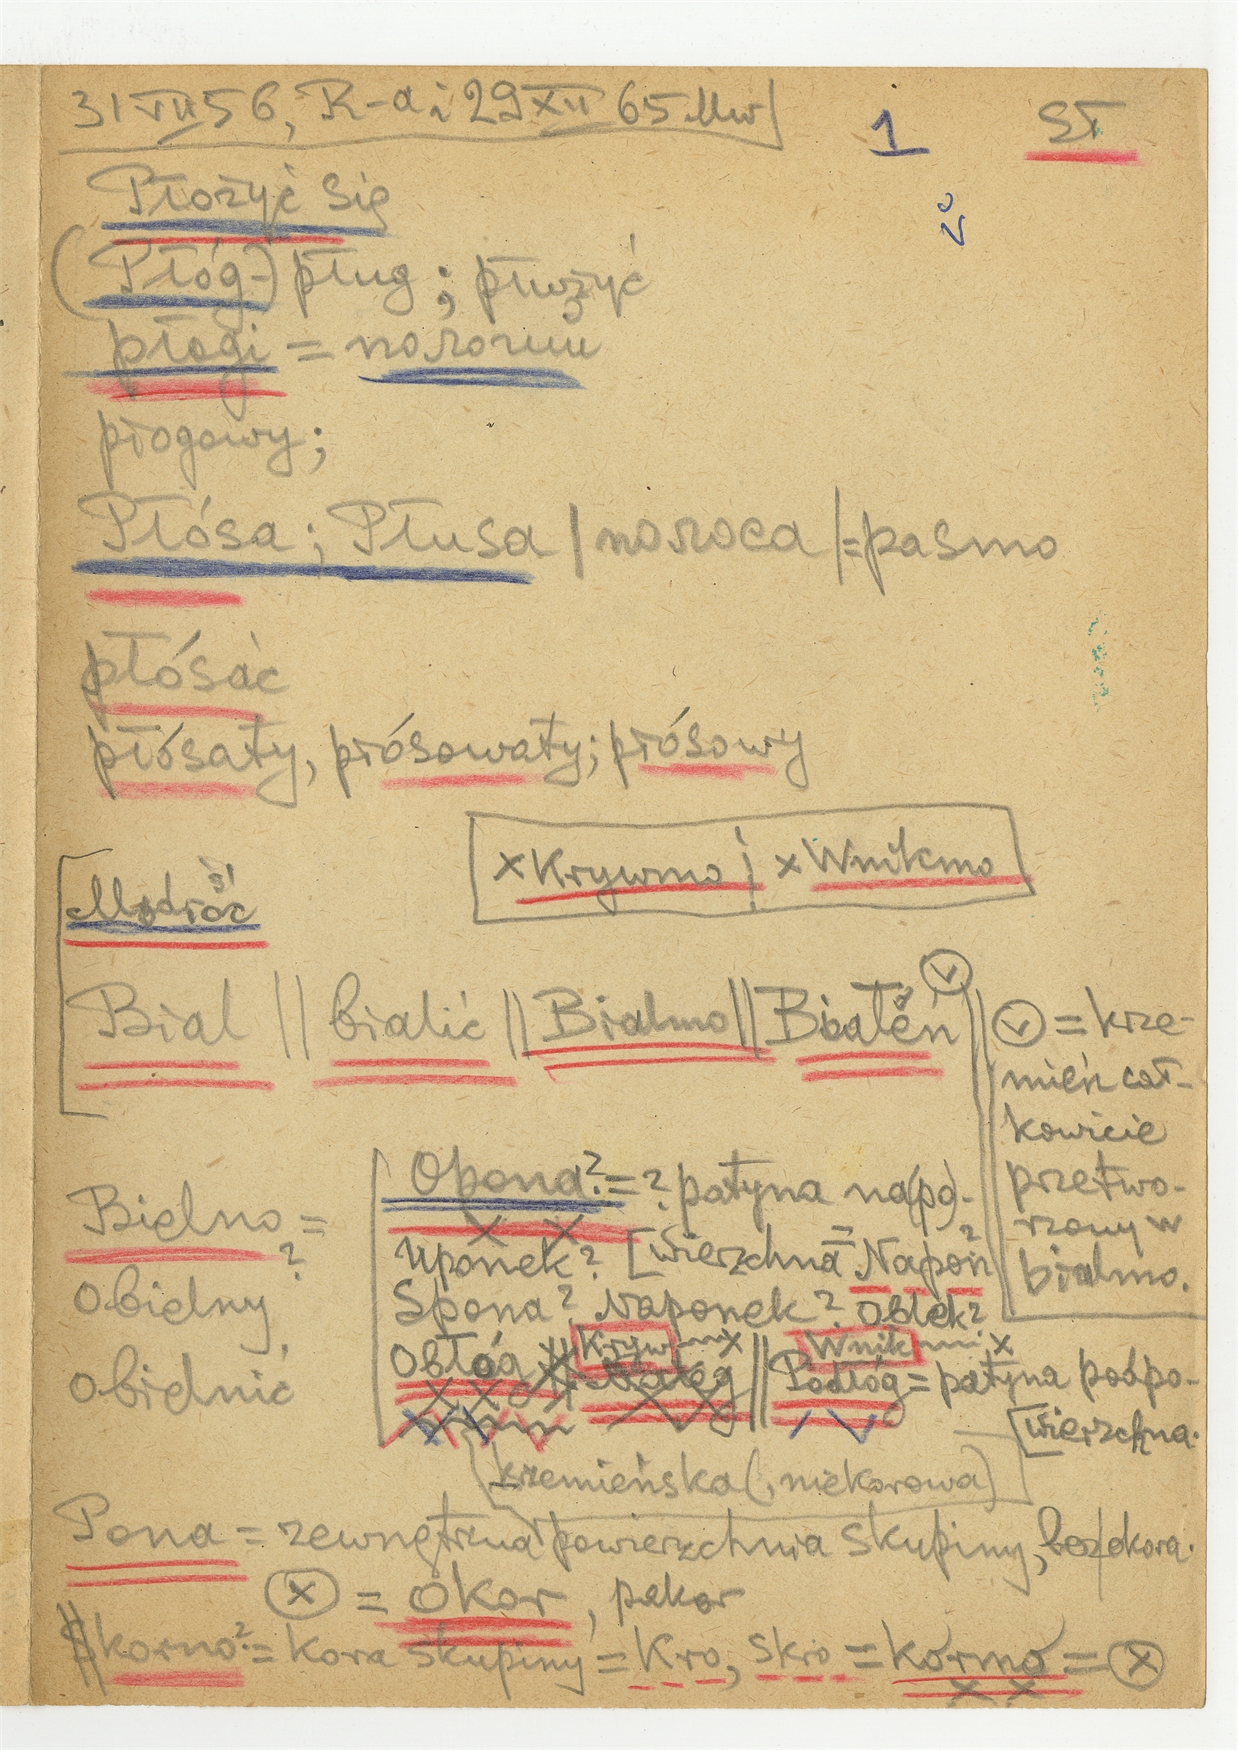 31 VII 56, R-a i 29 XII 65 Mw
1
ST
Płożyć się
v
(Płóg-) pług; płużyć
płogi =
płogowy;
Płósa; Płusa | полоса | = pasmo
płósać
płósaty, płósowaty; płósowy
x Krywmo; x Wnikmo
Modrość
Biał || bialić || Bialmo || Białeń v
v = krze-
mień cał-
kowicie
przetwo-
rzony w
bialmo.
Bielno =
?
obielny,
obielnić
Opona? = ? patyna na(po)-
uponek? [wierzchna = Napoń?
Spona? Naponek? oblek?
Obłóg Kryw x || Wnik x
Podłóg = patyna podpo-
[wierzchna.
krzemieńska (, niekorowa)
Pona = zewnętrzna powierzchnia skupiny, bez/okora.
x = okor, pokor
korno? = kora skupiny = Kro, skro = kormo = x